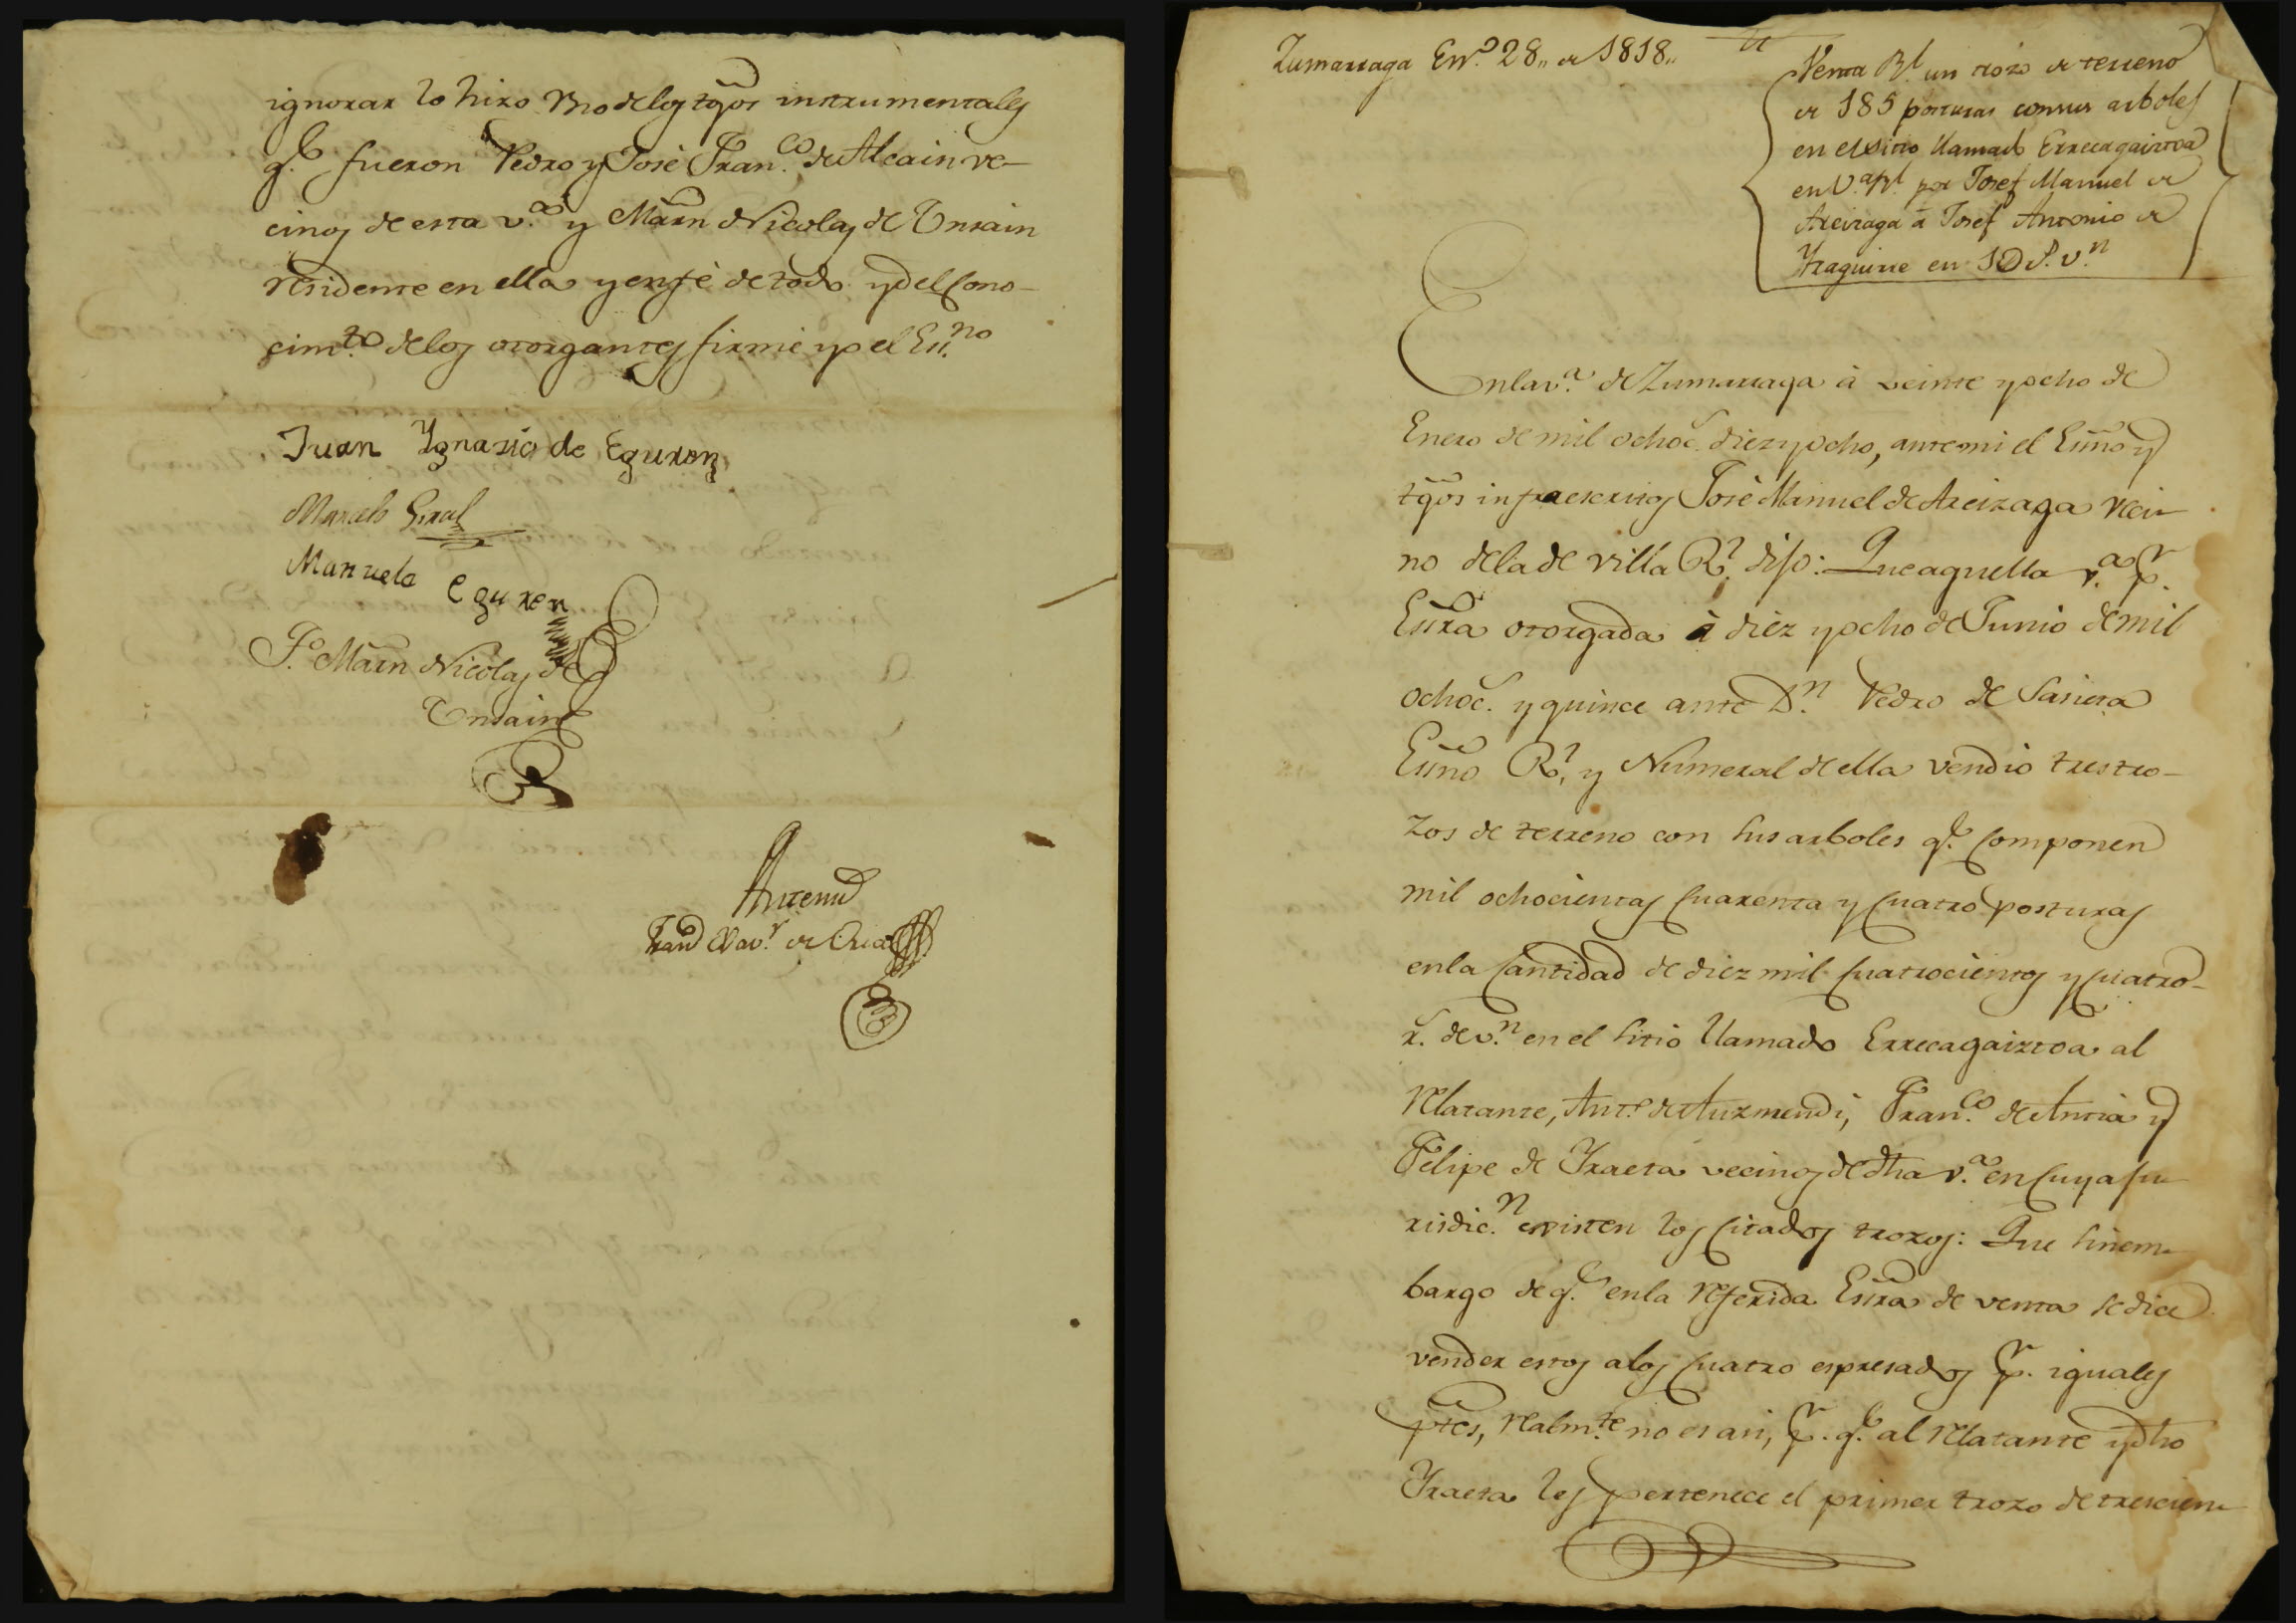 ignorar lo hizo vno delos tg̃os instrumentales
q.e fueron Pedro y José Fran.co de Alcain ve-
cinos de esta v.a y Mãrn Nicolas de Vnsain
residente en ella y en fé de todo y del cono-
cim.to delos otorgantes firmé yo el Es.no
Juan Ygnasio de Eguren
Marcelo Giral
Manuela Eguren
T.o Mãrn Nicolas de
Vnsain
Antemi
Zumarraga En.o 28,, de 1818,,
Venta R.l un trozo de terreno
de 185 posturas con sus arboles
en el sitio llamado Errecagaiztoa
en V.a R.l por Josef Manuel de
Areizaga á Josef Antonio de
Yzaguirre en
En la v.a de Zumarraga á veinte y ocho de
Enero de mil ochoc.s diez y ocho, ante mi el Esño y
tg̃os infraescritos José Manuel de Areizaga veci-
no dela de villa R.l dijo: Que aquella v.a p.r
Esr̃a otorgada á diez y ocho de Junio de mil
ochoc.s y quince ante D.n Pedro de Sasieta
Esño R.l y Numeral de ella vendió tres tro-
zos de terreno con sus arboles q.e componen
mil ochocientas cuarenta y cuatro posturas
en la cantidad de diez mil cuatrocientos y cuatro
r.s de v.n en el sitio llamado Errecagaiztoa al
relatante, Ant.o de Auzmendi, Fran.co de Antia y
Felipe de Yraeta vecinos de dha v.a en cuya ju-
risdic.n existen los citados trozos: Que sinem-
bargo de q.e en la referida Esr̃a de venta se dice
vender estos alos cuatro espresados p.r iguales
ptẽs, realm.te no es asi, p.r q.e al relatante y dho
Yraeta les pertenece el primer trozo de trescien-